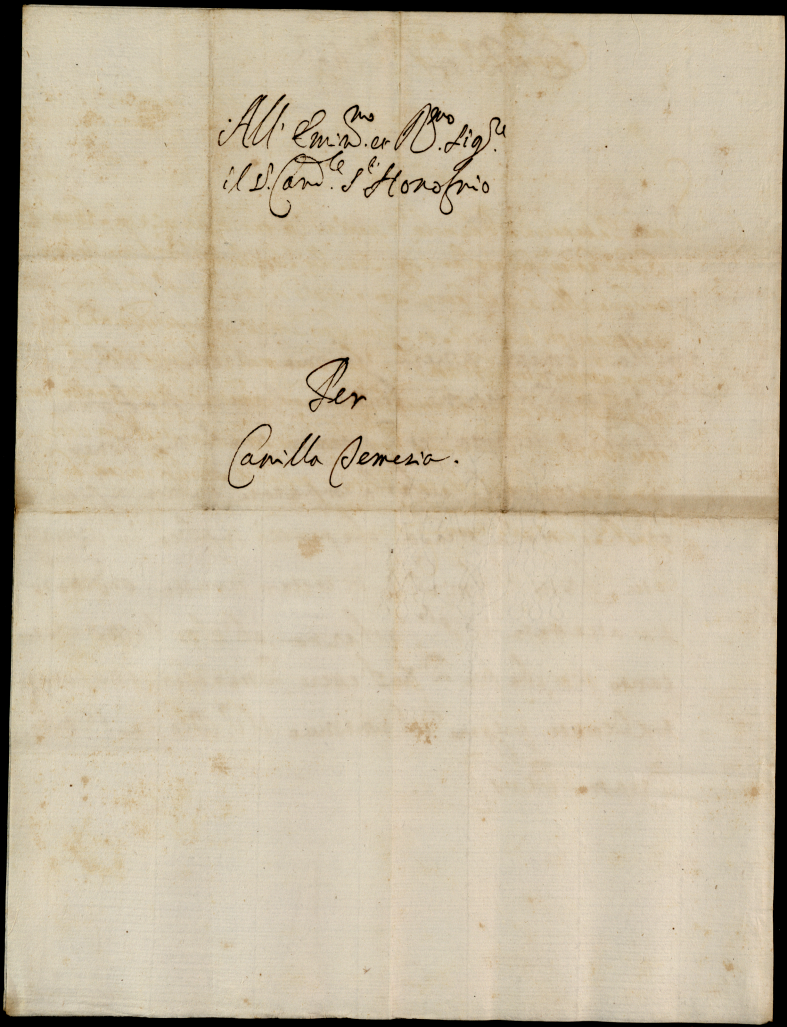 All' Emin.mo et R.mo Sig.re
il S.r Card.le S.t Honofrio
Per
Camilla